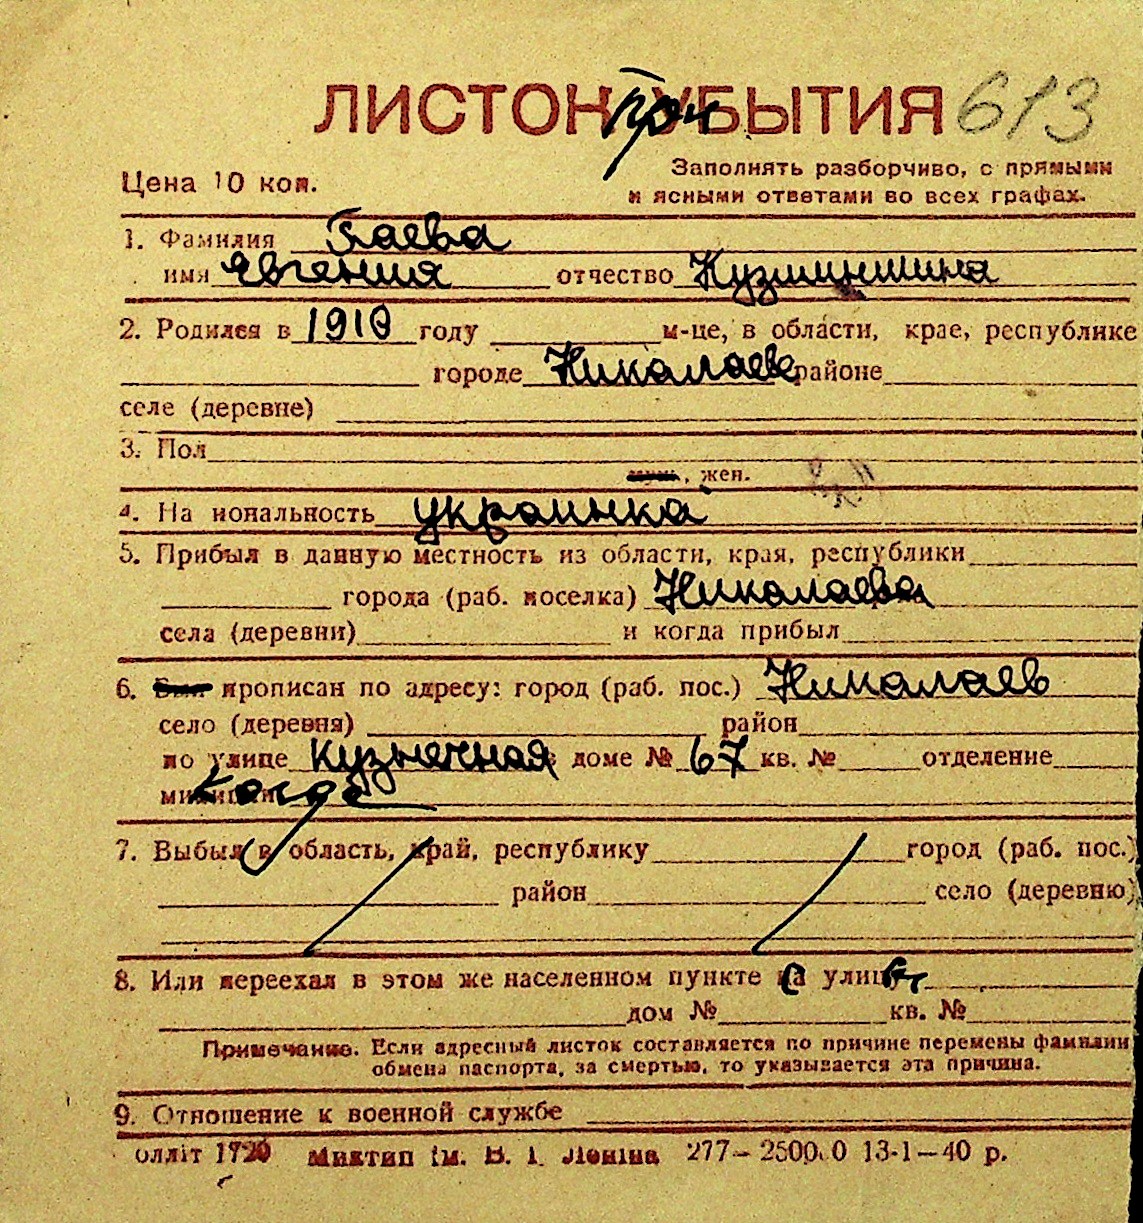 ЛИСТОК УБЫТИЯ При 613
Заполнять разборчиво, с прямыми
Цена 10 коп. и ясными ответами во всех графах.
1. Фамилия Гаева
имя Евгения отчество Кузьминишна
2. Родился в 1910 году м-це, в области, крае, республике
городе Николаеве районе
селе (деревне)
3. Пол
муж., жен.
4. Национальность украинка
5. Прибыл в данную местность из области, края, республики
города (раб. поселка) Николаева
села (деревни) и когда прибыл
6. Был прописан по адресу: город (раб. пос.) Николаев
село (деревня) район
по улице Кузнечная доме № 67 кв. № отделение
милиции
7. Выбыл в область, край, республику город (раб. пос.)
район село (деревню)
8. Или переехал в этом же населенном пункте на улицу
дом № кв. №
Примечание. Если адресный листок составляется по причине перемены фамилии
обмена паспорта, за смертью, то указывается эта причина.
9. Отношение к военной службе
олліт 1720 Миктип ім. В. І. Леніна 277—2500.0 13-1—40 р.